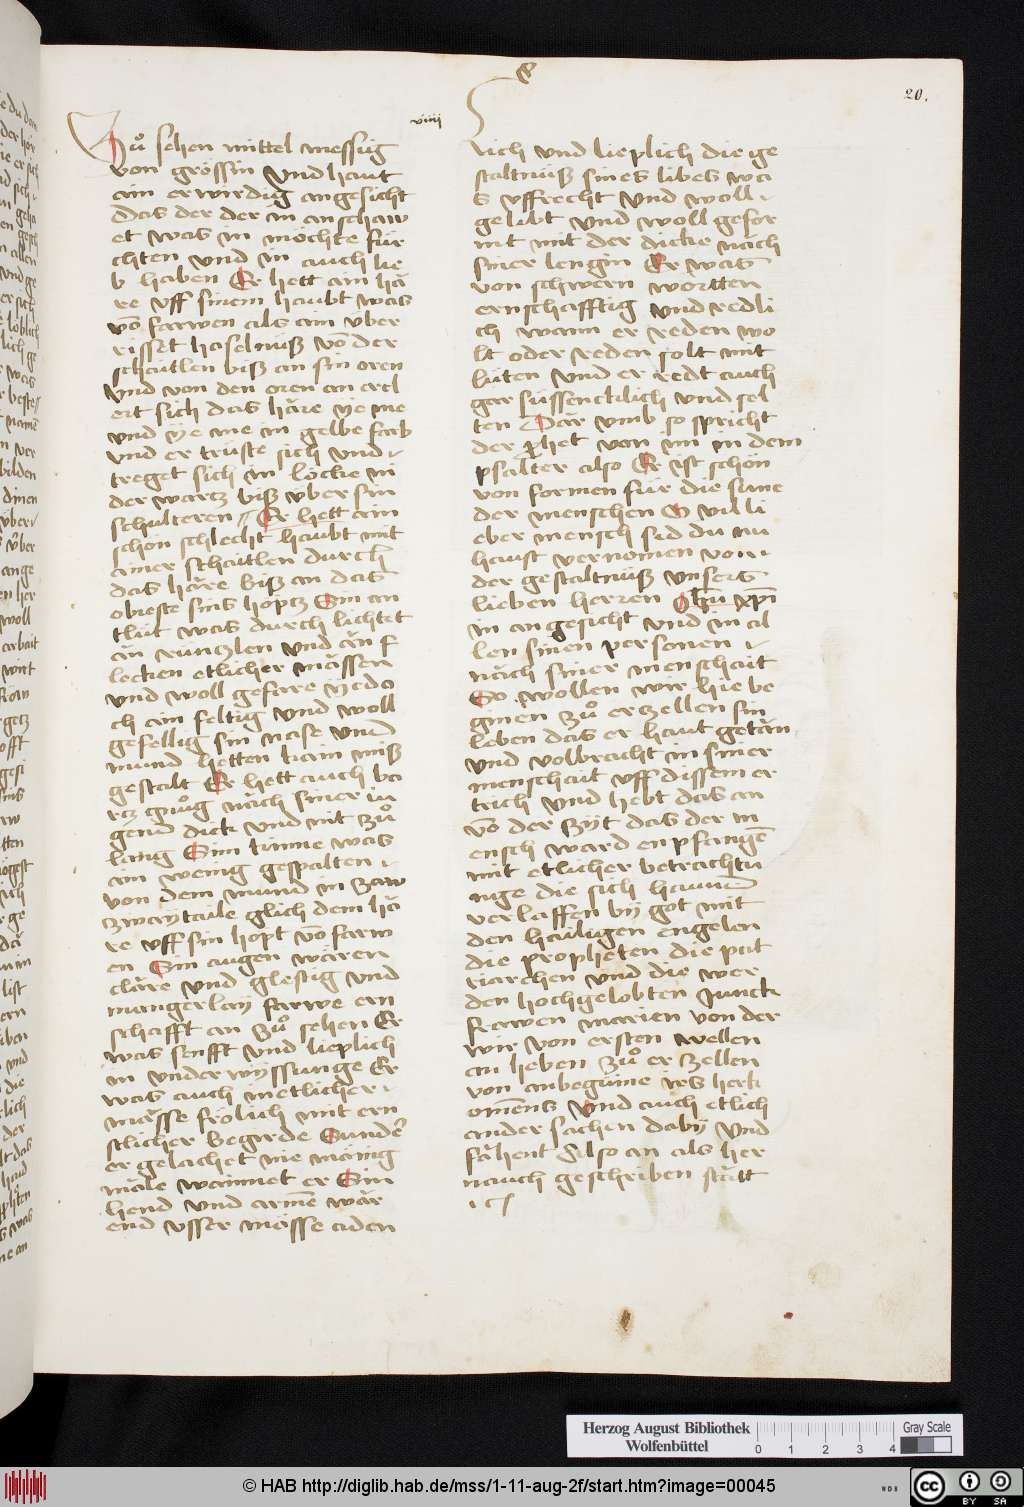 20.
viiij
Zuͦ sehen mittel messig
von grössin Vnd haut
ain erwirdig angesicht
das der der in anschaw
et was in möchte für
chten vnd in auch lie
b haben Er hett ain hä
re vff sinem haubt was
vō farwen als ain über
risset haselnuß vō der
schaitlen biß an sin oren
vnd von den oren an erel
ert sich das häre ÿe me
vnd ÿe me in gelbe farb
vnd er truste sich vnd
treget sich in löcke ni
der wartz biß über sin
schulteren Er hett ain
schön schlecht haubt mit
ainer schaitlen durch
das häre biß an das
obreste sins hoptz Sin an
tlüt was durch lichtet
än rüntzlen vnd än f
lecken etlicher mässen
vnd woll gefare ÿedo
ch ain feltig vnd woll
gefellig sin nase vnd
mund hetten kain miß
gestalt Er hett auch ba
rtz gnuͦg näch siner iu
gend dick vnd nit zuͦ
lang Sin kinne was
ain wenig gespalten
von dem mund in zaw
zwaÿ taile glich dem hä
re vff sin hopt vō farw
en Sin augen wären
cläre vnd glestig vnd
mangerlaÿ farwe ern
schafft an zuͦ sehen Er
was senfft vnd lieplich
in vnder wÿssunge Er
was auch in etlicher
mässe frölich mit ern
stlicher begirde Sunder
er gelachet nie mänig
mäle wainnet er Sin
hend vnd armē wär
end vsser mässe aden
lich vnd lieplich die ge
staltnuß sines libes wa
s vffrecht vnd woll
gelibt vnd woll gefor
mt mit der dicke näch
siner lengin Er was
von schwern wortten
ernschafftig vnd redli
ch wann er reden wo
lt oder reden solt mit
lüten vnd er redt auch
gar süssencklich vnd sel
ten Där vmb so spricht
der p̄het von im in dem
psalter also Er ist schön
von formen für die süne
der menschen O villi
eber mensch sid du nu
haust vernomen von
der gestaltnuß vnsers
lieben herren ihū xp̄i
in angesicht vnd in al
len sinen personen
näch siner menschait
So wollen wir hie be
ginen zuͦ erzellen sin
leben das er haut getän
vnd volbracht in siner
menschait vff dissem er
trich vnd hebt das an
vō der zÿt das der m
ensch ward enpfangē
mit etlicher betrachtu
nge die sich haund
verlassen bÿ got mit
den hailigen engelen
die propheten die pat
riarchen vnd die wer
den hochgelobten Junck
frawen marien von der
wir von ersten wellen
an heben zuͦ erzellen
von anbeginne irs herk
omens Vnd auch etlich
ander sachen dabÿ vnd
fähent also an als her
nauch geschriben stätt
Herzog August Bibliothek
Wolfenbüttel
0 1 2 3 4
Gray Scale
© HAB http://diglib.hab.de/mss/1-11-aug-2f/start.htm?image=00045
WDB
cc BY SA